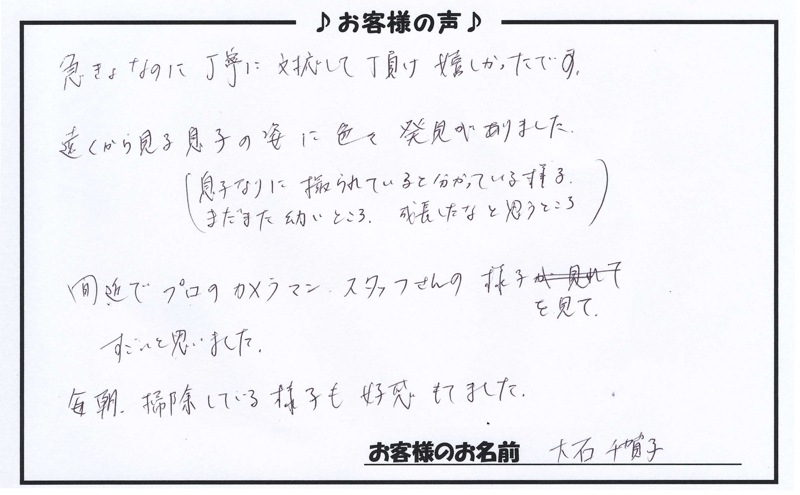 ♪お客様の声♪
急きょなのに 丁寧に 対応して頂け 嬉しかったです。
遠くから見る息子の姿に色々 発見がありました。
(息子なりに 撮られていると分かっている様子。
まだまだ幼いところ。 成長したなと思うところ)
間近で プロのカメラマン、スタッフさんの 様子が見れて
を見て、
すごいと思いました。
毎朝、掃除している様子も 好感もてました。
お客様のお名前 大石 千賀子